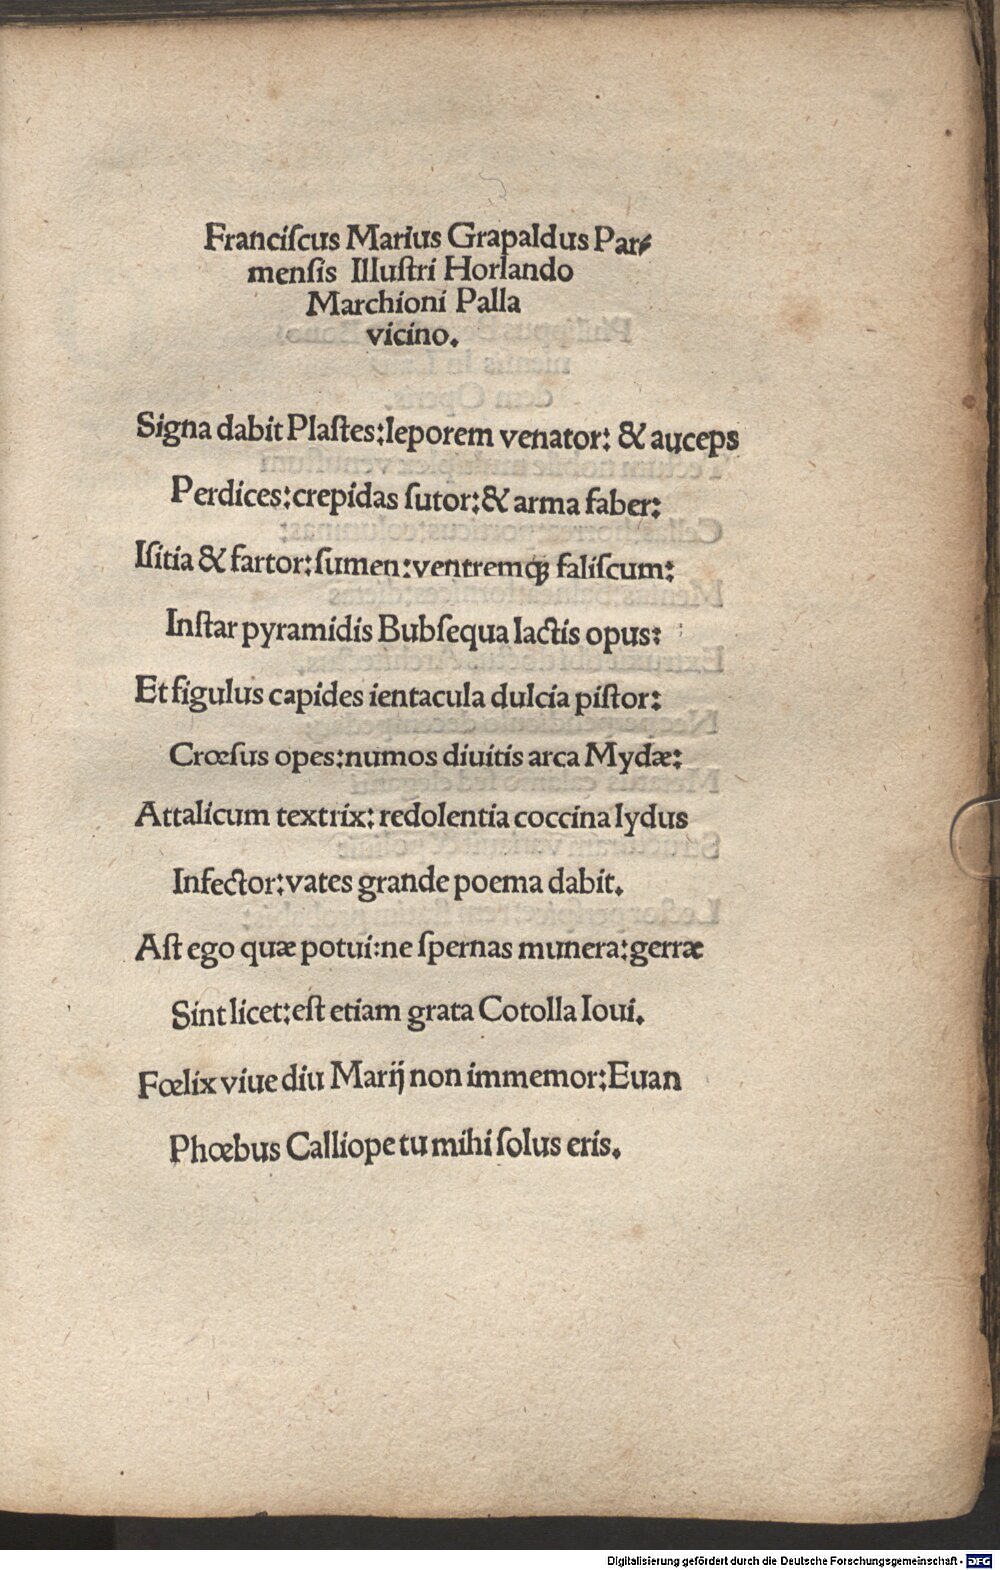 Franciſcus Marius Grapaldus Par⸗
menſis Illuſtri Horlando
Marchioni Palla
vicino.
Signa dabit Plaſtes:leporem venator: & auceps
Perdices:crepidas ſutor:& arma faber:
Iſitia & fartor:ſumen:ventremqꝫ faliſcum:
Inſtar pyramidis Bubſequa lactis opus:
Et figulus capides ientacula dulcia piſtor:
Crœſus opes:numos diuitis arca Mydæ:
Attalicum textrix: redolentia coccina lydus
Infector:vates grande poema dabit.
Aſt ego quæ potui:ne ſpernas munera:gerræ
Sint licet:eſt etiam grata Cotolla Ioui.
Fœlix viue diu Marij non immemor:Euan
Phœbus Calliope tu mihi ſolus eris.
Digitalisierung gefördert durch die Deutsche Forschungsgemeinschaft - DFG